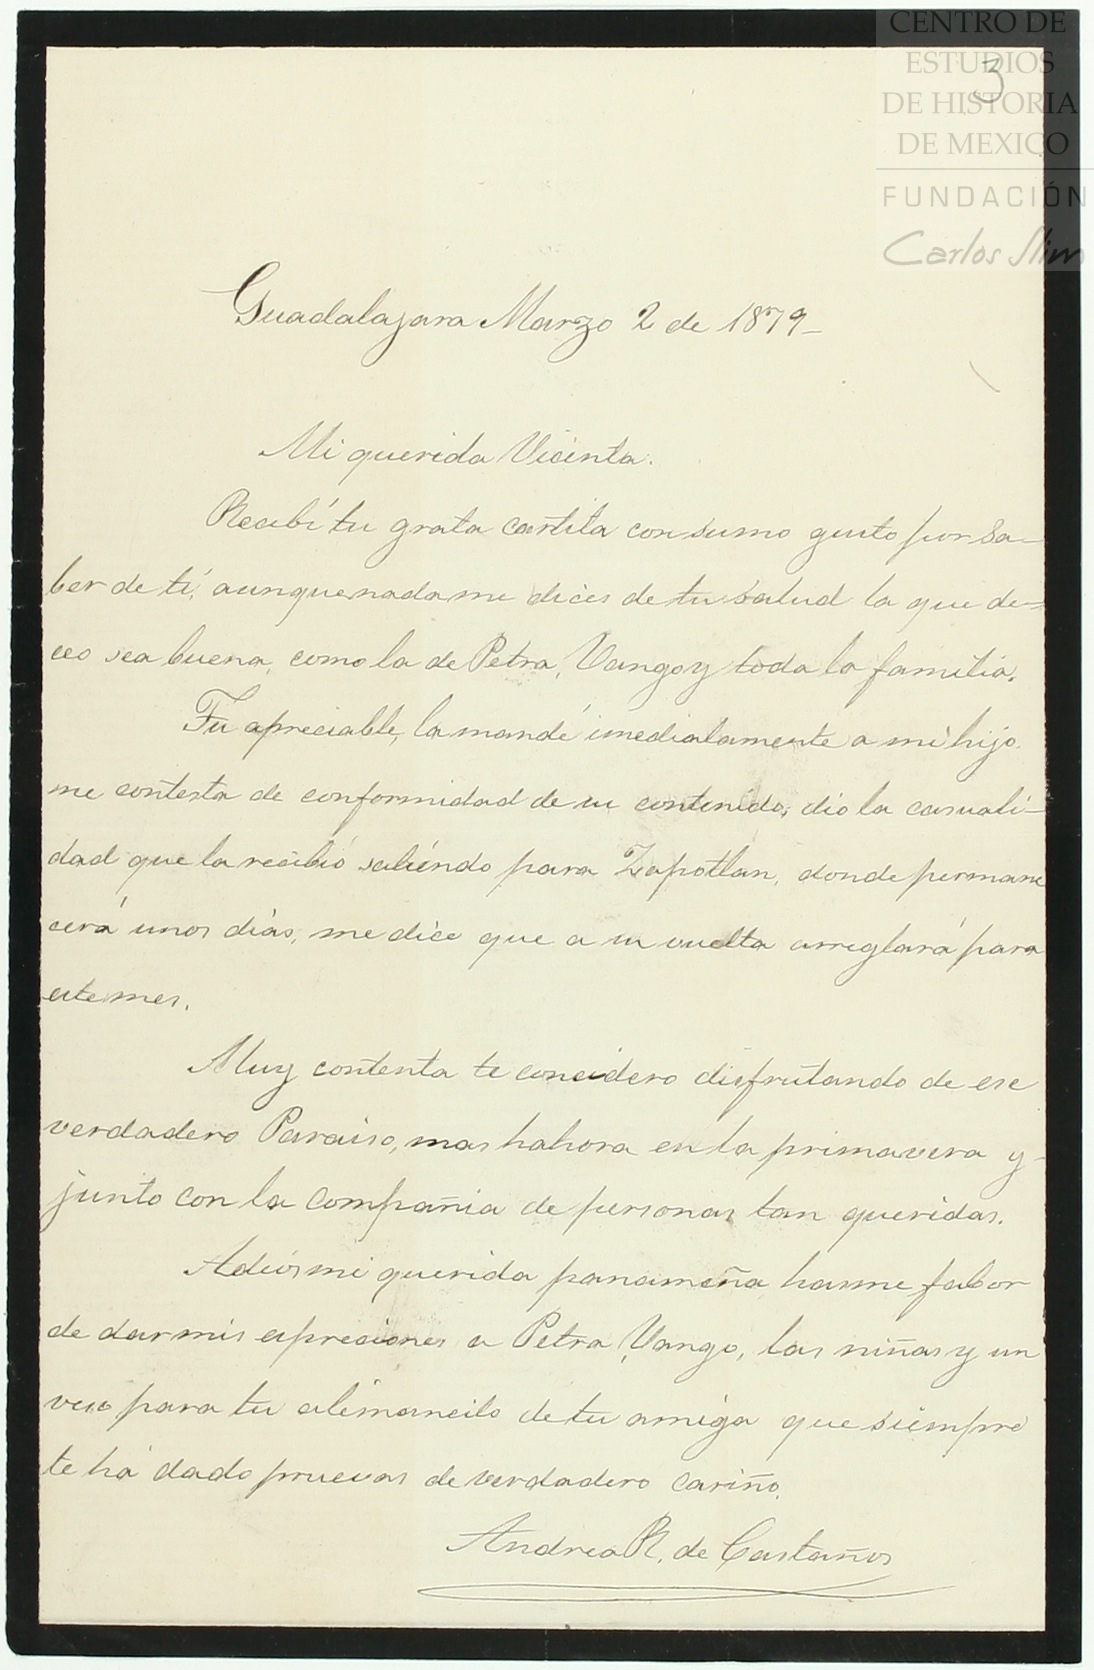 CENTRO DE
ESTUDIOS
DE HISTORIA
DE MEXICO
FUNDACIÓN
Carlos Slim
3
Guadalajara Marzo 2 de 1879_
Mi querida Vicenta.
Recibí tu grata cartita con sumo gusto por sa-
ber de tí, aunque nada me dices de tu salud la que de=
ceo sea buena, como la de Petra, Vango y toda la familia.
Tu apreciable, la mandé imediatamente a mi hijo
me contesta de conformidad de su contenido, dio la casuali-
dad que la recibió saliendo para Zapotlan, donde permane
cerá unos dias, me dice que a su vuelta arreglará para
este mes.
Muy contenta te concidero disfrutando de ese
verdadero Paraiso, mas hahora en la primavera y-
junto con la compañia de personas tan queridas.
Adios mi querida panameña hasme fabor
de dar mis espreciones a Petra, Vango, las niñas y un
veso para tu alemancito de tu amiga que siempre
te há dado pruevas de verdadero cariño.
Andrea R. de Castaños